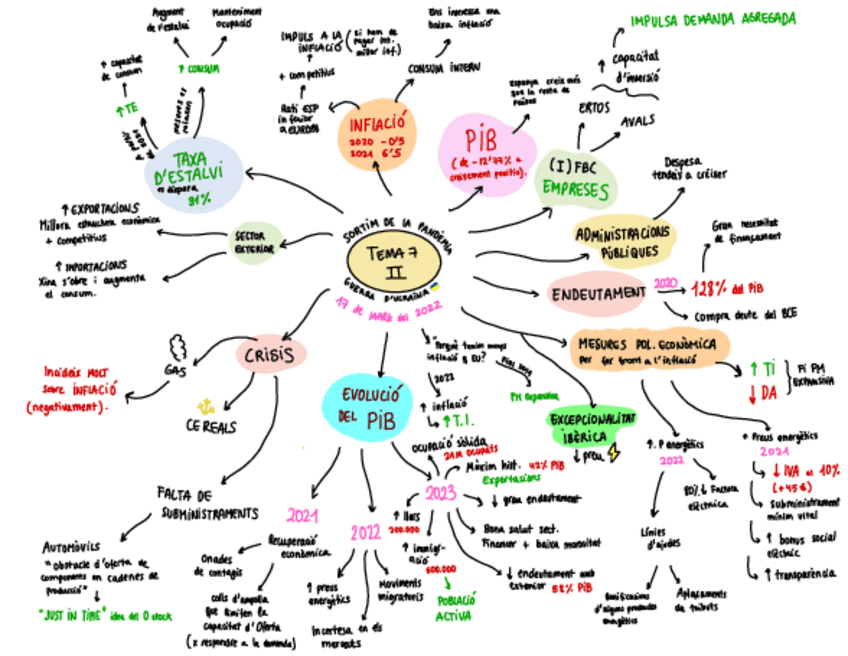 Augment
de l'estalvi
Manteniment
ocupació
↑ capacitat
de consum
↑ CONSUM
↑ TE
TAXA
D'ESTALVI
es dispara
31%
IMPULS A LA
INFLACIÓ
+ competitius
Rati ESP
inferior
a EUROPA
INFLACIÓ
2020 -0'5
2021 6'5
CONSUM INTERN
Ens interessa una
baixa inflació
PIB
(de -12'77% a
creixement positiu).
Espanya creix més
que la resta de
Països
IMPULSA DEMANDA AGREGADA
↑ capacitat
d'inversió
ERTOS
AVALS
(I) FBC
EMPRESES
Despesa
tendeix a créixer
ADMINISTRACIONS
PÚBLIQUES
Gran necessitat
de finançament
ENDEUTAMENT
2020
128% del PIB
Compra deute del BCE
↑ EXPORTACIONS
Millora estructura econòmica
+ competitius
SECTOR
EXTERIOR
↑ IMPORTACIONS
Xina s'obre i augmenta
el consum.
SORTIM DE LA PANDÈMIA
TEMA 7
II
GUERRA D'UCRAÏNA
17 de MARÇ del 2022
MESURES POL. ECONÒMICA
per fer front a l'inflació
↑ TI
↓ DA
Pi PM
EXPANSIVA
CRISIS
GAS
Incideix MOLT
sobre INFLACIÓ
(negativament).
CEREALS
FALTA DE
SUBMINISTRAMENTS
AUTOMÒVILS
"obstacle d'oferta de
components en cadenes de
producció"
"JUST IN TIME" idea del 0 stock
EVOLUCIÓ
DEL PIB
Perquè tenim menys
inflació q EU?
2023
↑ inflació
↳ ↑ T.I.
PM expansiva
EXCEPCIONALITAT
IBÈRICA
↓ preu
2021
Recuperació
econòmica
Onades
de contagis
colls d'ampolla
que limiten la
capacitat d'Oferta
(x respondre a la demanda)
2022
↑ preus
energètics
Incertesa en els
mercats
Moviments
migratoris
2023
Ocupació sòlida
21M ocupats
Màxim hist. 42% PIB
Exportacions
↓ grau endeutament
Bona salut sect.
Financer + baixa morositat
↓ endeutament amb
exterior 58% PIB
↑ llars
200.000
↑ immigr-
ació
600.000
POBLACIÓ
ACTIVA
↑. P energètics
2022
80% ↓ Factura
elèctrica
Línies
d'ajudes
Bonificacions
d'alguns productes
energètics
Aplaçaments
de tributs
↑ Preus energètics
2021
↓ IVA al 10%
(+45€)
Subministrament
mínim vital
↑ bonus social
elèctric
↑ transparència